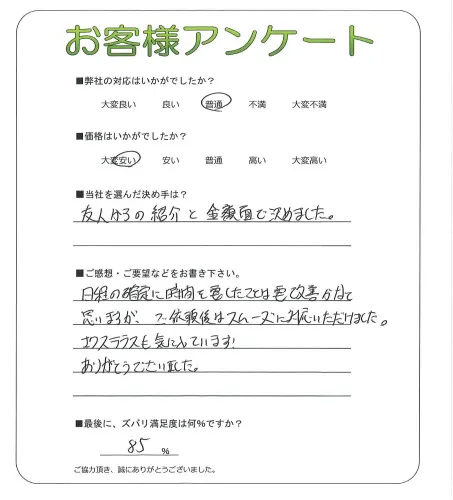 お客様アンケート
■弊社の対応はいかがでしたか？
大変良い 良い 普通 不満 大変不満
■価格はいかがでしたか？
大変安い 安い 普通 高い 大変高い
■当社を選んだ決め手は？
友人からの紹介と金額面で決めました。
■ご感想・ご要望などをお書き下さい。
日程の確定に時間を要したことは要改善かなと
思いますが、ご依頼後はスムーズに対応いただけました。
エクステリアも気に入っています!
ありがとうございました。
■最後に、ズバリ満足度は何％ですか？
85 %
ご協力頂き、誠にありがとうございました。